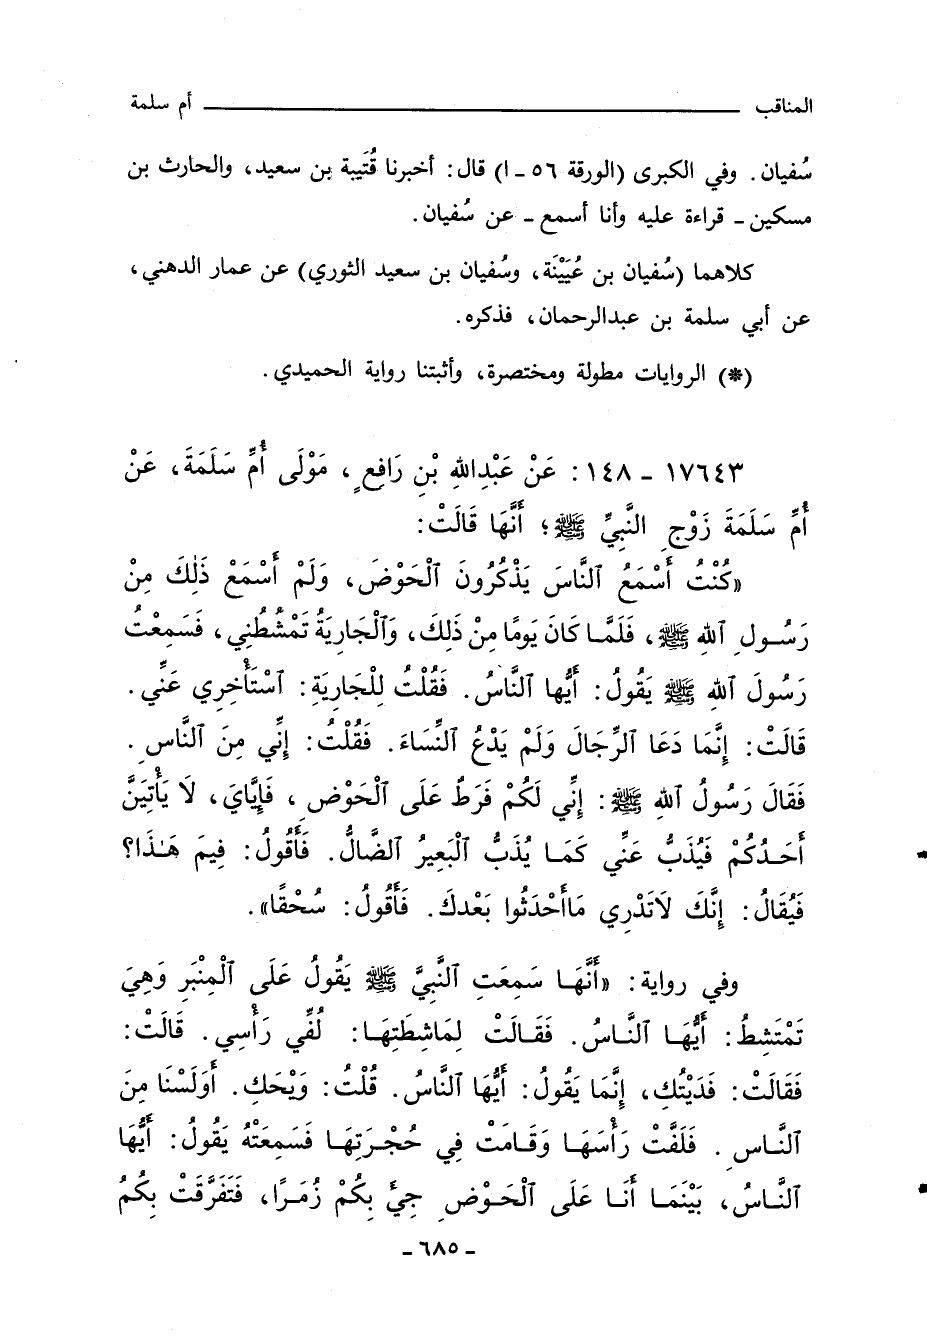 المناقب أم سلمة
سُفيان. وفي الكبرى (الورقة ٥٦ ـ ا) قال: أخبرنا قُتَيبة بن سعيد، والحارث بن
مسكين ـ قراءة عليه وأنا أسمع ـ عن سُفيان.
كلاهما (سُفيان بن عُيَيْنَة، وسُفيان بن سعيد الثوري) عن عمار الدهني،
عن أبي سلمة بن عبدالرحمان، فذكره.
(*) الروايات مطولة ومختصرة، وأثبتنا رواية الحميدي.
١٧٦٤٣ ـ ١٤٨: عَنْ عَبْدِاللهِ بْنِ رَافِعٍ، مَوْلَى أُمِّ سَلَمَةَ، عَنْ
أُمِّ سَلَمَةَ زَوْجِ النَّبِيِّ ﷺ؛ أَنَّهَا قَالَتْ:
«كُنْتُ أَسْمَعُ ٱلنَّاسَ يَذْكُرُونَ ٱلْحَوْضَ، وَلَمْ أَسْمَعْ ذَٰلِكَ مِنْ
رَسُولِ ٱللهِ ﷺ، فَلَمَّا كَانَ يَومًا مِنْ ذَلِكَ، وَٱلْجَارِيَةُ تَمْشُطُنِي، فَسَمِعْتُ
رَسُولَ ٱللهِ ﷺ يَقُولُ: أَيُّها ٱلنَّاسُ. فَقُلْتُ لِلْجَارِيَةِ: ٱسْتَأْخِرِي عَنِّي.
قَالَتْ: إِنَّمَا دَعَا ٱلرِّجَالَ وَلَمْ يَدْعُ ٱلنِّسَاءَ. فَقُلْتُ: إِنِّي مِنَ ٱلنَّاسِ.
فَقَالَ رَسُولُ ٱللهِ ﷺ: إِنِّي لَكُمْ فَرَطٌ عَلَى ٱلْحَوْضِ، فَإِيَّايَ، لَا يَأْتِيَنَّ
أَحَدُكُمْ فَيُذَبُّ عَنِّي كَمَا يُذَبُّ ٱلْبَعِيرُ ٱلضَّالُّ. فَأَقُولُ: فِيمَ هَـٰذَا؟
فَيُقَالُ: إِنَّكَ لَاتَدْرِي مَاأَحْدَثُوا بَعْدكَ. فَأَقُولُ: سُحْقًا».
وفي رواية: «أَنَّهَا سَمِعَتِ ٱلنَّبِيَّ ﷺ يَقُولُ عَلَى ٱلْمِنْبَرِ وَهِيَ
تَمْتَشِطُ: أَيُّهَا ٱلنَّاسُ. فَقَالَتْ لِمَاشِطَتِهَا: لُفِّي رَأْسِي. قَالَتْ:
فَقَالَتْ: فَدَيْتُكِ، إِنَّمَا يَقُولُ: أَيُّهَا ٱلنَّاسُ. قُلْتُ: وَيْحَكِ. أَوَلَسْنَا مِنَ
ٱلنَّاسِ. فَلَفَّتْ رَأْسَهَا وَقَامَتْ فِي حُجْرَتِهَا فَسَمِعَتْهُ يَقُولُ: أَيُّهَا
ٱلنَّاسُ، بَيْنَمَا أَنَا عَلَى ٱلْحَوْضِ جِيءَ بِكُمْ زُمَرًا، فَتَفَرَّقَتْ بِكُمُ
ـ ٦٨٥ ـ